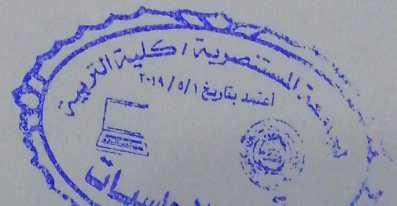 الجامعة المستنصرية / كلية التربية
اعتمد بتاريخ ٢٠١٩/٥/١